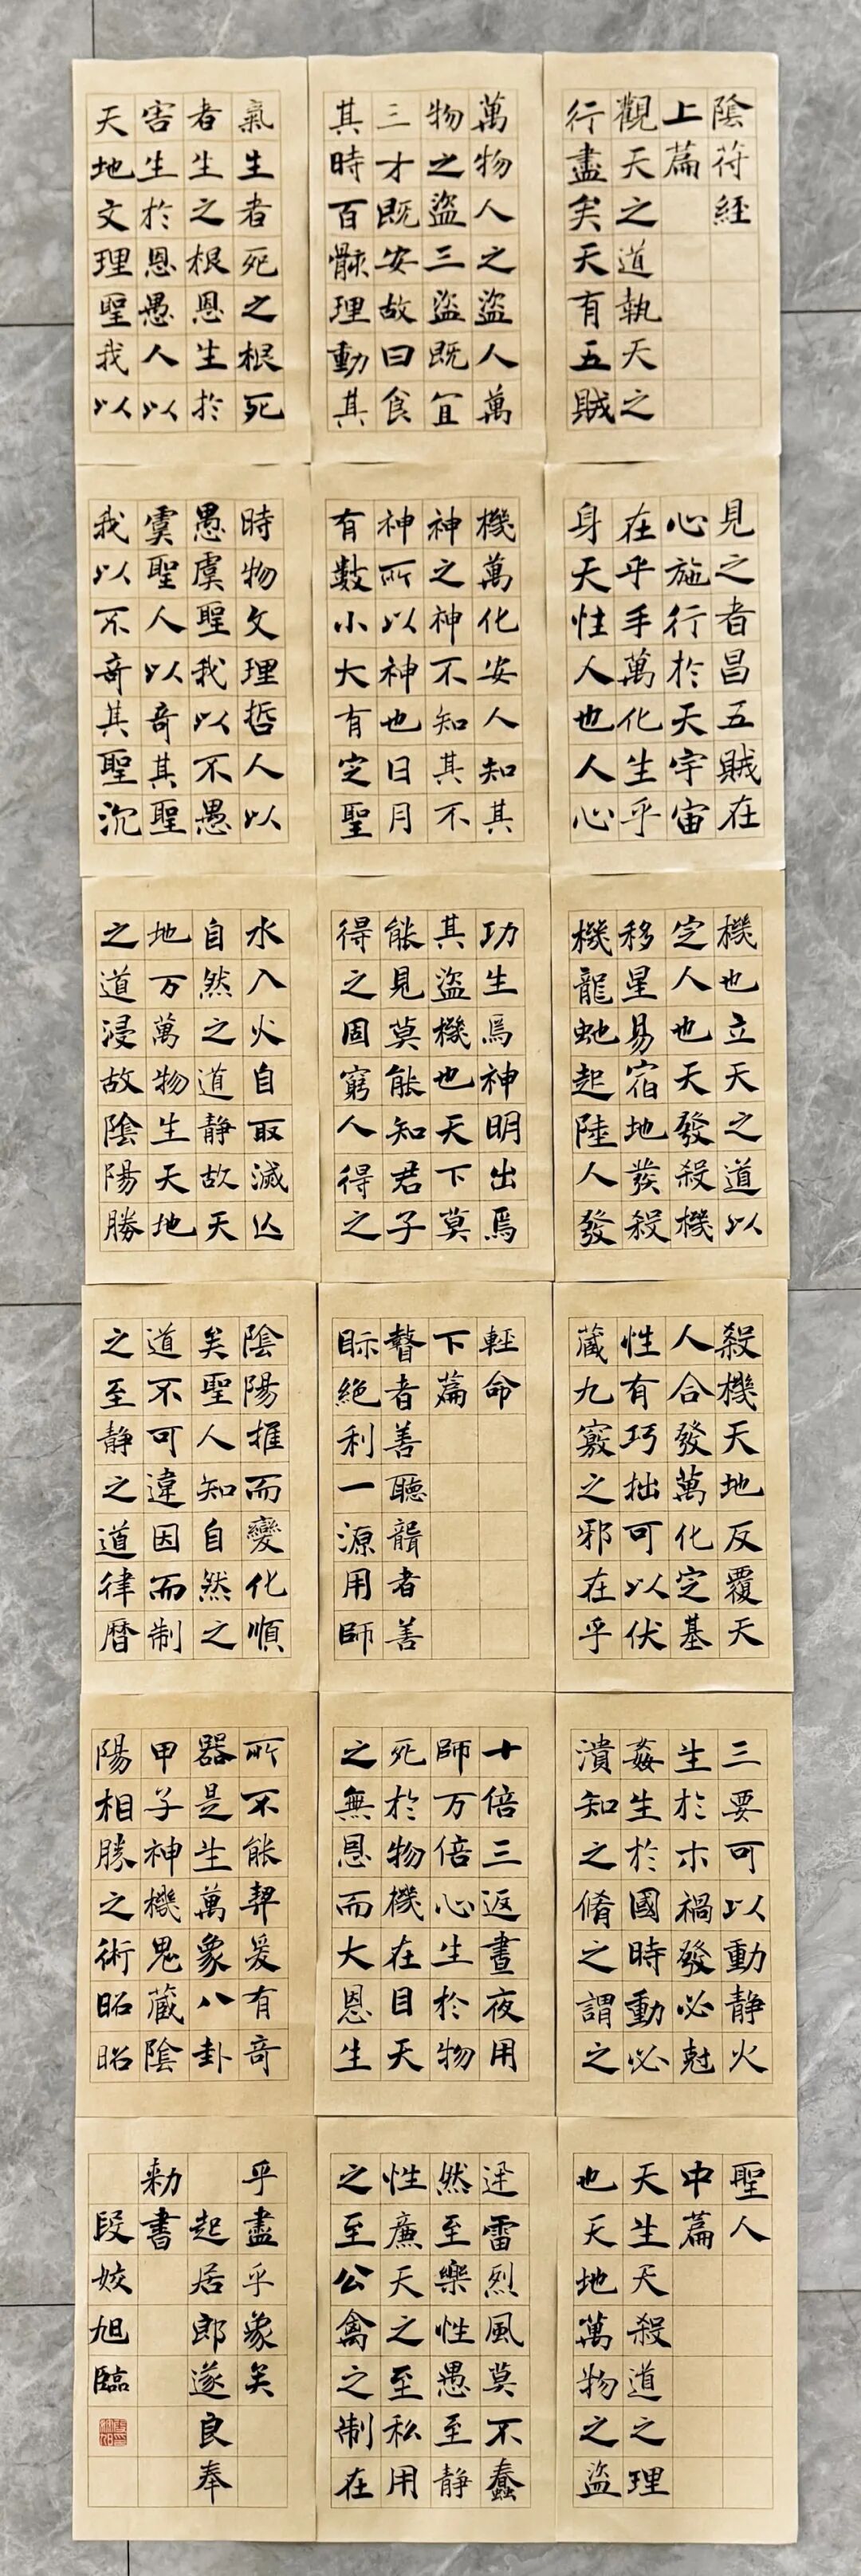 陰符經
上篇
觀天之道執天之
行盡矣天有五賊
見之者昌五賊在
心施行於天宇宙
在乎手萬化生乎
身天性人也人心
機也立天之道以
定人也天發殺機
移星易宿地發殺
機龍虵起陸人發
殺機天地反覆天
人合發萬化定基
性有巧拙可以伏
藏九竅之邪在乎
三要可以動静火
生於木禍發必尅
姦生於國時動必
潰知之脩之謂之
聖人
中篇
天生天殺道之理
也天地萬物之盜
萬物人之盜人萬
物之盜三盜既宜
三才既安故曰食
其時百骸理動其
機萬化安人知其
神之神不知其不
神所以神也日月
有數小大有定聖
功生焉神明出焉
其盜機也天下莫
能見莫能知君子
得之固窮人得之
輕命
下篇
瞽者善聽聾者善
眎絶利一源用師
十倍三返晝夜用
師万倍心生於物
死於物機在目天
之無恩而大恩生
迅雷烈風莫不蠢
然至樂性愚至静
性廉天之至私用
之至公禽之制在
氣生者死之根死
者生之根恩生於
害生於恩愚人以
天地文理聖我以
時物文理哲人以
愚虞聖我以不愚
虞聖人以奇其聖
我以不奇其聖沉
水入火自取滅亡
自然之道静故天
地万萬物生天地
之道浸故陰陽勝
陰陽推而變化順
矣聖人知自然之
道不可違因而制
之至静之道律曆
所不能契爰有奇
器是生萬象八卦
甲子神機鬼藏陰
陽相勝之術昭昭
乎盡乎象矣
起居郎遂良奉
勑書
段姣旭臨